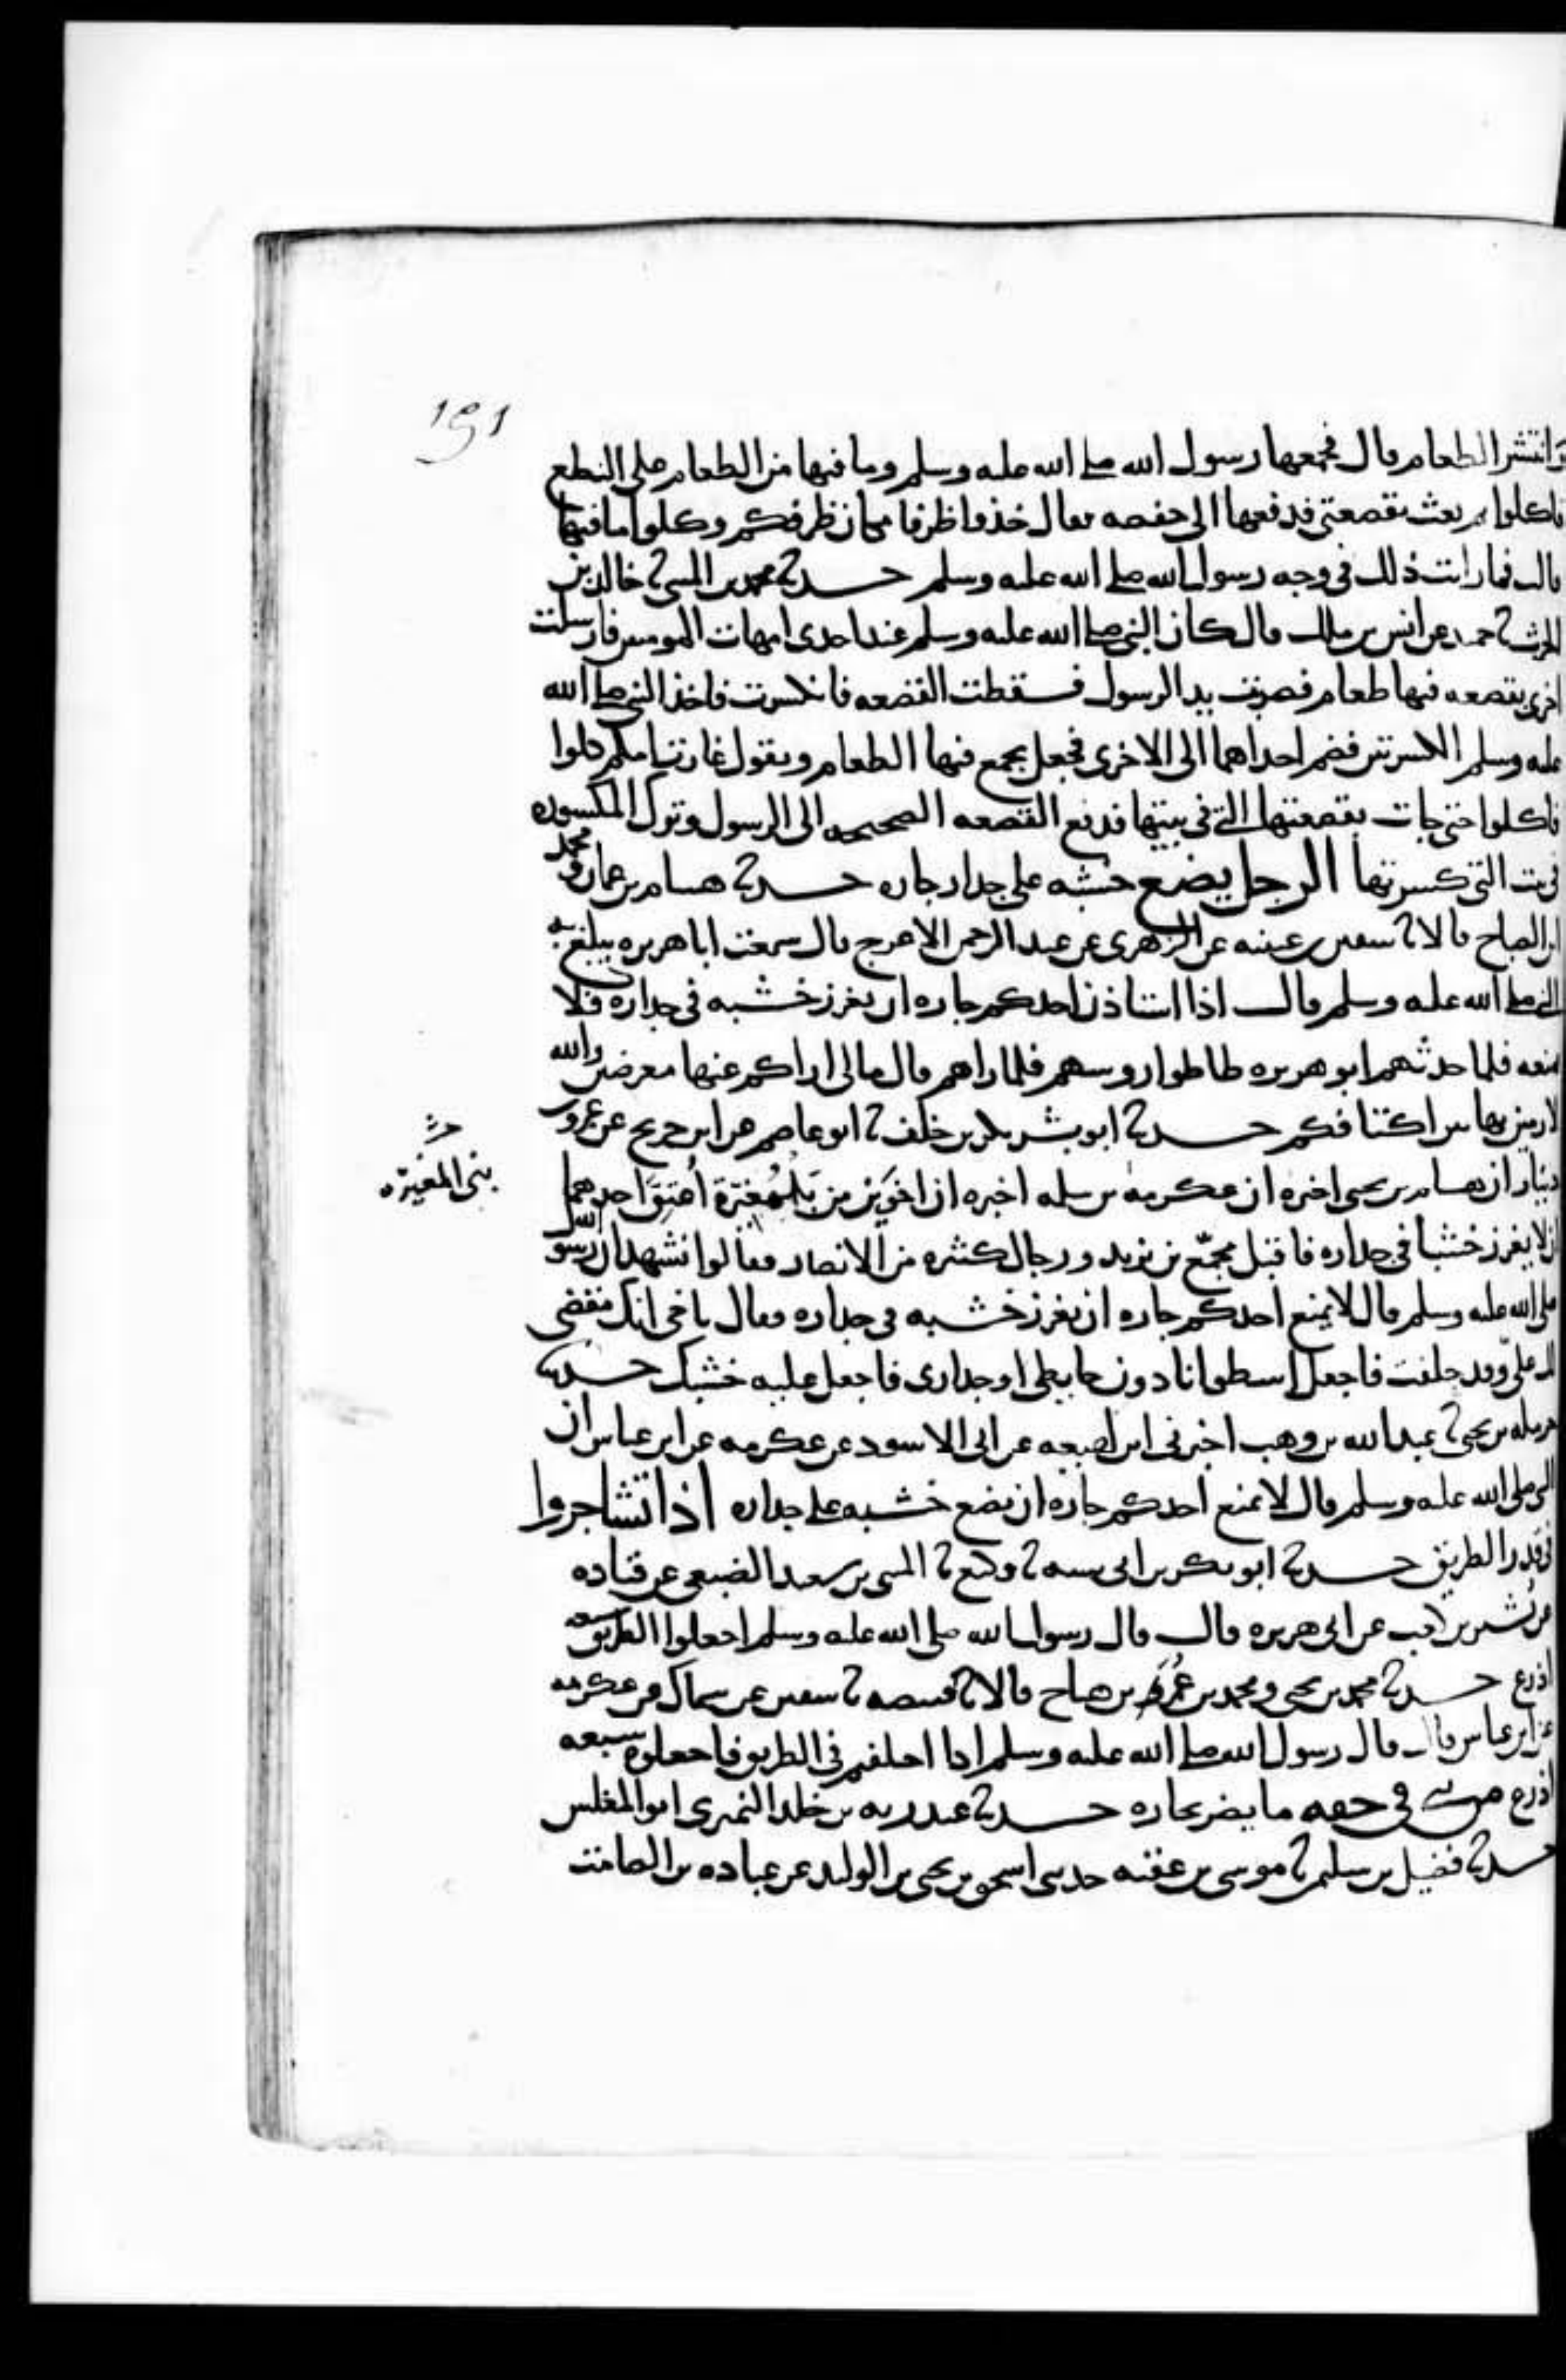 191
وانتشر الطعام قال فجمعها رسول الله صلى الله عليه وسلم وما فيها من الطعام على النطع
فاكلوا ثم بعث بقصعتي فدفعها الى حفصه فقال خذوا ظرفا مكان ظرفكم وكلوا ما فيها
قالت فما رايت ذلك في وجه رسول الله صلى الله عليه وسلم حدثنا محمد بن المثنى ثنا خالد بن
الحرث ثنا حميد عن انس بن ملك قال كان النبي صلى الله عليه وسلم عند احدى امهات المومنين فارسلت
اخرى بقصعه فيها طعام فضربت يد الرسول فسقطت القصعه فانكسرت فاخذ النبي صلى الله
عليه وسلم الكسرتين فضم احداهما الى الاخرى فجعل يجمع فيها الطعام ويقول غارت امكم كلوا
فاكلوا حتى جات بقصعتها التي في بيتها فدفع القصعه الصحيحه الى الرسول وترك المكسوره
في بيت التي كسرتها الرجل يضع خشبه على جدار جاره حدثنا هسام بن عمار ومحمد
ابن الصباح قالا ثنا سفين بن عيينه عن الزهرى عن عبد الرحمن الاعرج قال سمعت ابا هريره يبلغ به
النبي صلى الله عليه وسلم قال اذا استاذن احدكم جاره ان يغرز خشبه في جداره فلا
يمنعه فلما حدثهم ابو هريره طاطوا روسهم فلما راهم قال مالى اراكم عنها معرضين والله
لارمين بها بين اكتافكم حدثنا ابو بشر بكر بن خلف ثنا ابو عاصم عن ابن جريج عن عمرو بن
دينار ان هسام بن يحيى اخبره ان عكرمه بن سلمه اخبره ان اخوين من بلمغيرة اعتق احدهما
بنى المغيره
ان لا يغرز خشبا في جداره فاقبل مجمّع بن يزيد ورجال كثيره من الانصار فقالوا نشهد ان رسول الله
صلى الله عليه وسلم قال لا يمنع احدكم جاره ان يغرز خشبه في جداره فقال ياخى انك مقضى
لك علىّ وقد حلفت فاجعل اسطوانا دون حايطى او جدارى فاجعل عليه خشبك حدثنا
حرمله بن يحيى ثنا عبد الله بن وهب اخبرني ابن لهيعه عن ابى الاسود عن عكرمه عن ابن عباس ان
النبي صلى الله عليه وسلم قال لا يمنع احدكم جاره ان يضع خشبه على جداره اذا تشاجروا
في قدر الطريق حدثنا ابو بكر بن ابى شيبه ثنا وكيع ثنا المثنى بن سعيد الضبعى عن قتاده
عن بُشير بن كعب عن ابى هريره قال قال رسول الله صلى الله عليه وسلم اجعلوا الطريق سبعه
اذرع حدثنا محمد بن يحيى ومحمد بن عمر بن هياج قالا ثنا قبيصه ثنا سفين عن سماك عن عكرمه
عن ابن عباس قال قال رسول الله صلى الله عليه وسلم اذا اختلفتم في الطريق فاجعلوه سبعه
اذرع من بنى في حقه ما يضر بجاره حدثنا عبد ربه بن خلد النميرى ابو المغلس
حدثنا فضيل بن سليمن ثنا موسى بن عقبه حدثنى اسحق بن يحيى بن الوليد عن عباده بن الصامت